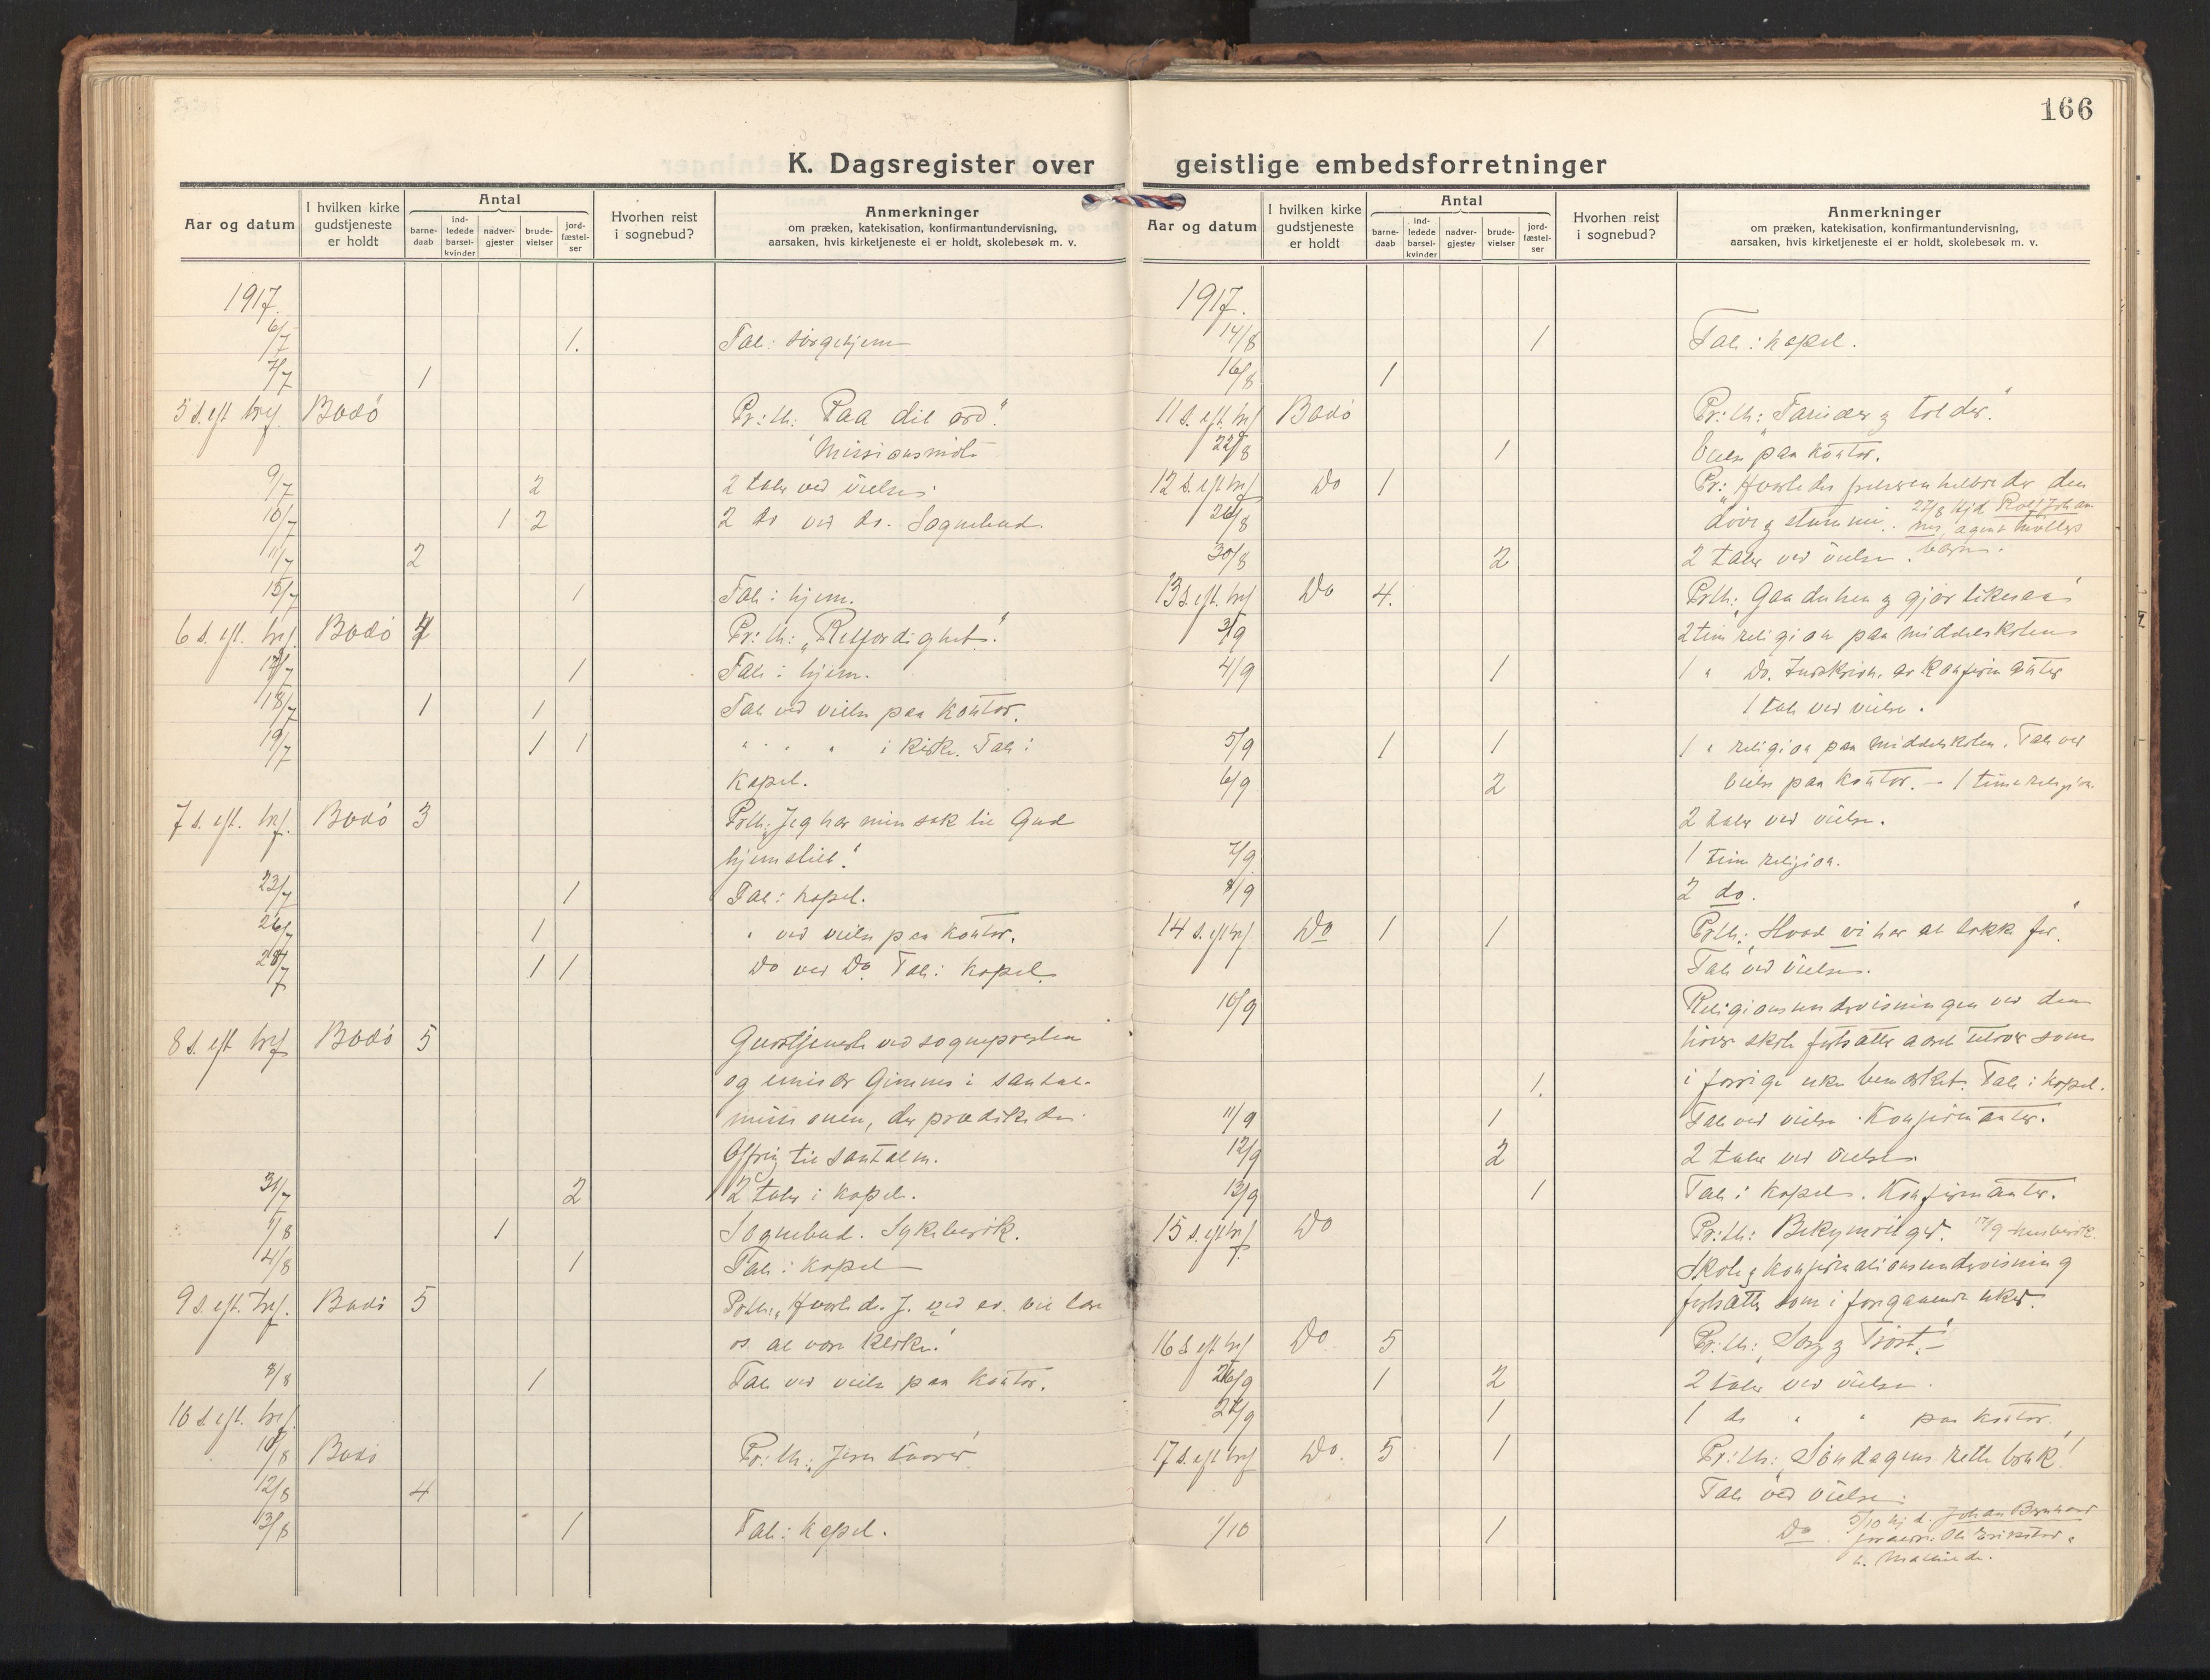 166
K. Dagsregister over geistlige embedsforretninger
Aar og datum
I hvilken kirke gudstjeneste er holdt
Antal
barne-daab
ind-ledede barsel-kvinder
nadver-gjester
brude-vielser
jord-fæstel-ser
Hvorhen reist i sognebud?
Anmerkninger
om præken, katekisation, konfirmantundervisning,
aarsaken, hvis kirketjeneste ei er holdt, skolebesøk m. v.
1917.
6/7 1. Tale i sørgehjem
7/7 1
5 s. eft. tref. Bodö Pr: th: "Paa dit ord".
Missionsmöte
9/7 2 2 taler ved vielse.
10/7 1 2 2 do ved do. Sognebud.
11/7 2
15/7 1 Tale i hjem.
6 s. eft. tref. Bodö Pr: th: "Retfærdighet".
17/7 1 Tale i hjem.
18/7 1 1 Tale ved vielse paa kontor.
19/7 1 1 " " " " i kirke. Tale i
kapel.
7 s. eft. tref. Bodö 3 Pr.th: "Jeg har min sak til Gud
hjemstilt".
23/7 1 Tale i kapel.
26/7 1 " ved vielse paa kontor.
1 1 Do ved Do. Tale i kapel.
8 s. eft tref Bodö 5 Gudstjeneste ved sognepresten
og emisær Gimnes i santal-
missionen, der prædikede.
Offring til santalm.
31/7 2 2 taler i kapel.
1/8 1 Sognebud. Sykebesök.
4/8 1 Tale i kapel
9 s. eft. tref. Bodö 5 Pr.th: "Hvorledes J. ved ev. vil lære
os at være kloke".
8/8 1 Tale ved vielse paa kontor.
10 s. eft. tref.
Bodö Pr: th: "Jesu taarer"
12/8 4
13/8 1 Tale i kapel.
Aar og datum
I hvilken kirke gudstjeneste er holdt
Antal
barne-daab
ind-ledede barsel-kvinder
nadver-gjester
brude-vielser
jord-fæstel-ser
Hvorhen reist i sognebud?
Anmerkninger
om præken, katekisation, konfirmantundervisning,
aarsaken, hvis kirketjeneste ei er holdt, skolebesøk m. v.
1917.
14/8 1 Tale i kapel.
16/8 1
11 s. eft. tref Bodö Pr: th: "Fariseer og tolder".
22/8 1 Vielse paa kontor.
12 s. eft tref Do 1 Pr: "Hvorledes frelseren helbreder den
26/8 döve og stumme".
30/8 2 2 taler ved vielse.
13 s. eft. tref Do 4. Pr.th: "Gaa du hen og gjør likesaa"
3/9 2 tim religion paa middelskolen
4/9 1 1 " Do. Indskrivn. av konfirmanter
1 tale ved vielse.
5/9 1 1 1 " religion paa middelskolen. Tale ved
6/9 2 vielse paa kontor. - 1 time religion.
2 taler ved vielse.
7/9 1 time religion.
8/9 2 do.
14 s. eft tref Do 1 1 Pr.th: "Hvad vi har at takke for".
Tale ved vielse.
10/9 Religionsundervisningen ved den
höiere skole fortsætter
1. i forrige uke bemerket. Tale i kapel.
11/9 1 Tale ved vielse. Konfirmanter.
12/9 2 2 taler ved vielse.
13/9 1 Tale i kapel. Konfirmanter.
15 s. eft tref Do Pr: th: Bekymringer. 17/9 husbesök.
Skole og konfirmationsundervisning
fortsætter som i foregaaende uker.
16 s. eft tref Do 5 Pr: th: "Sorg og Tröst".
26/9 1 2 2 taler ved vielse.
27/9 1 1 do " " paa kontor.
17 s. eft tref Do. 5 1 Pr: th: "Söndagens rette bruk".
Tale ved vielse.
1/10 1 Do